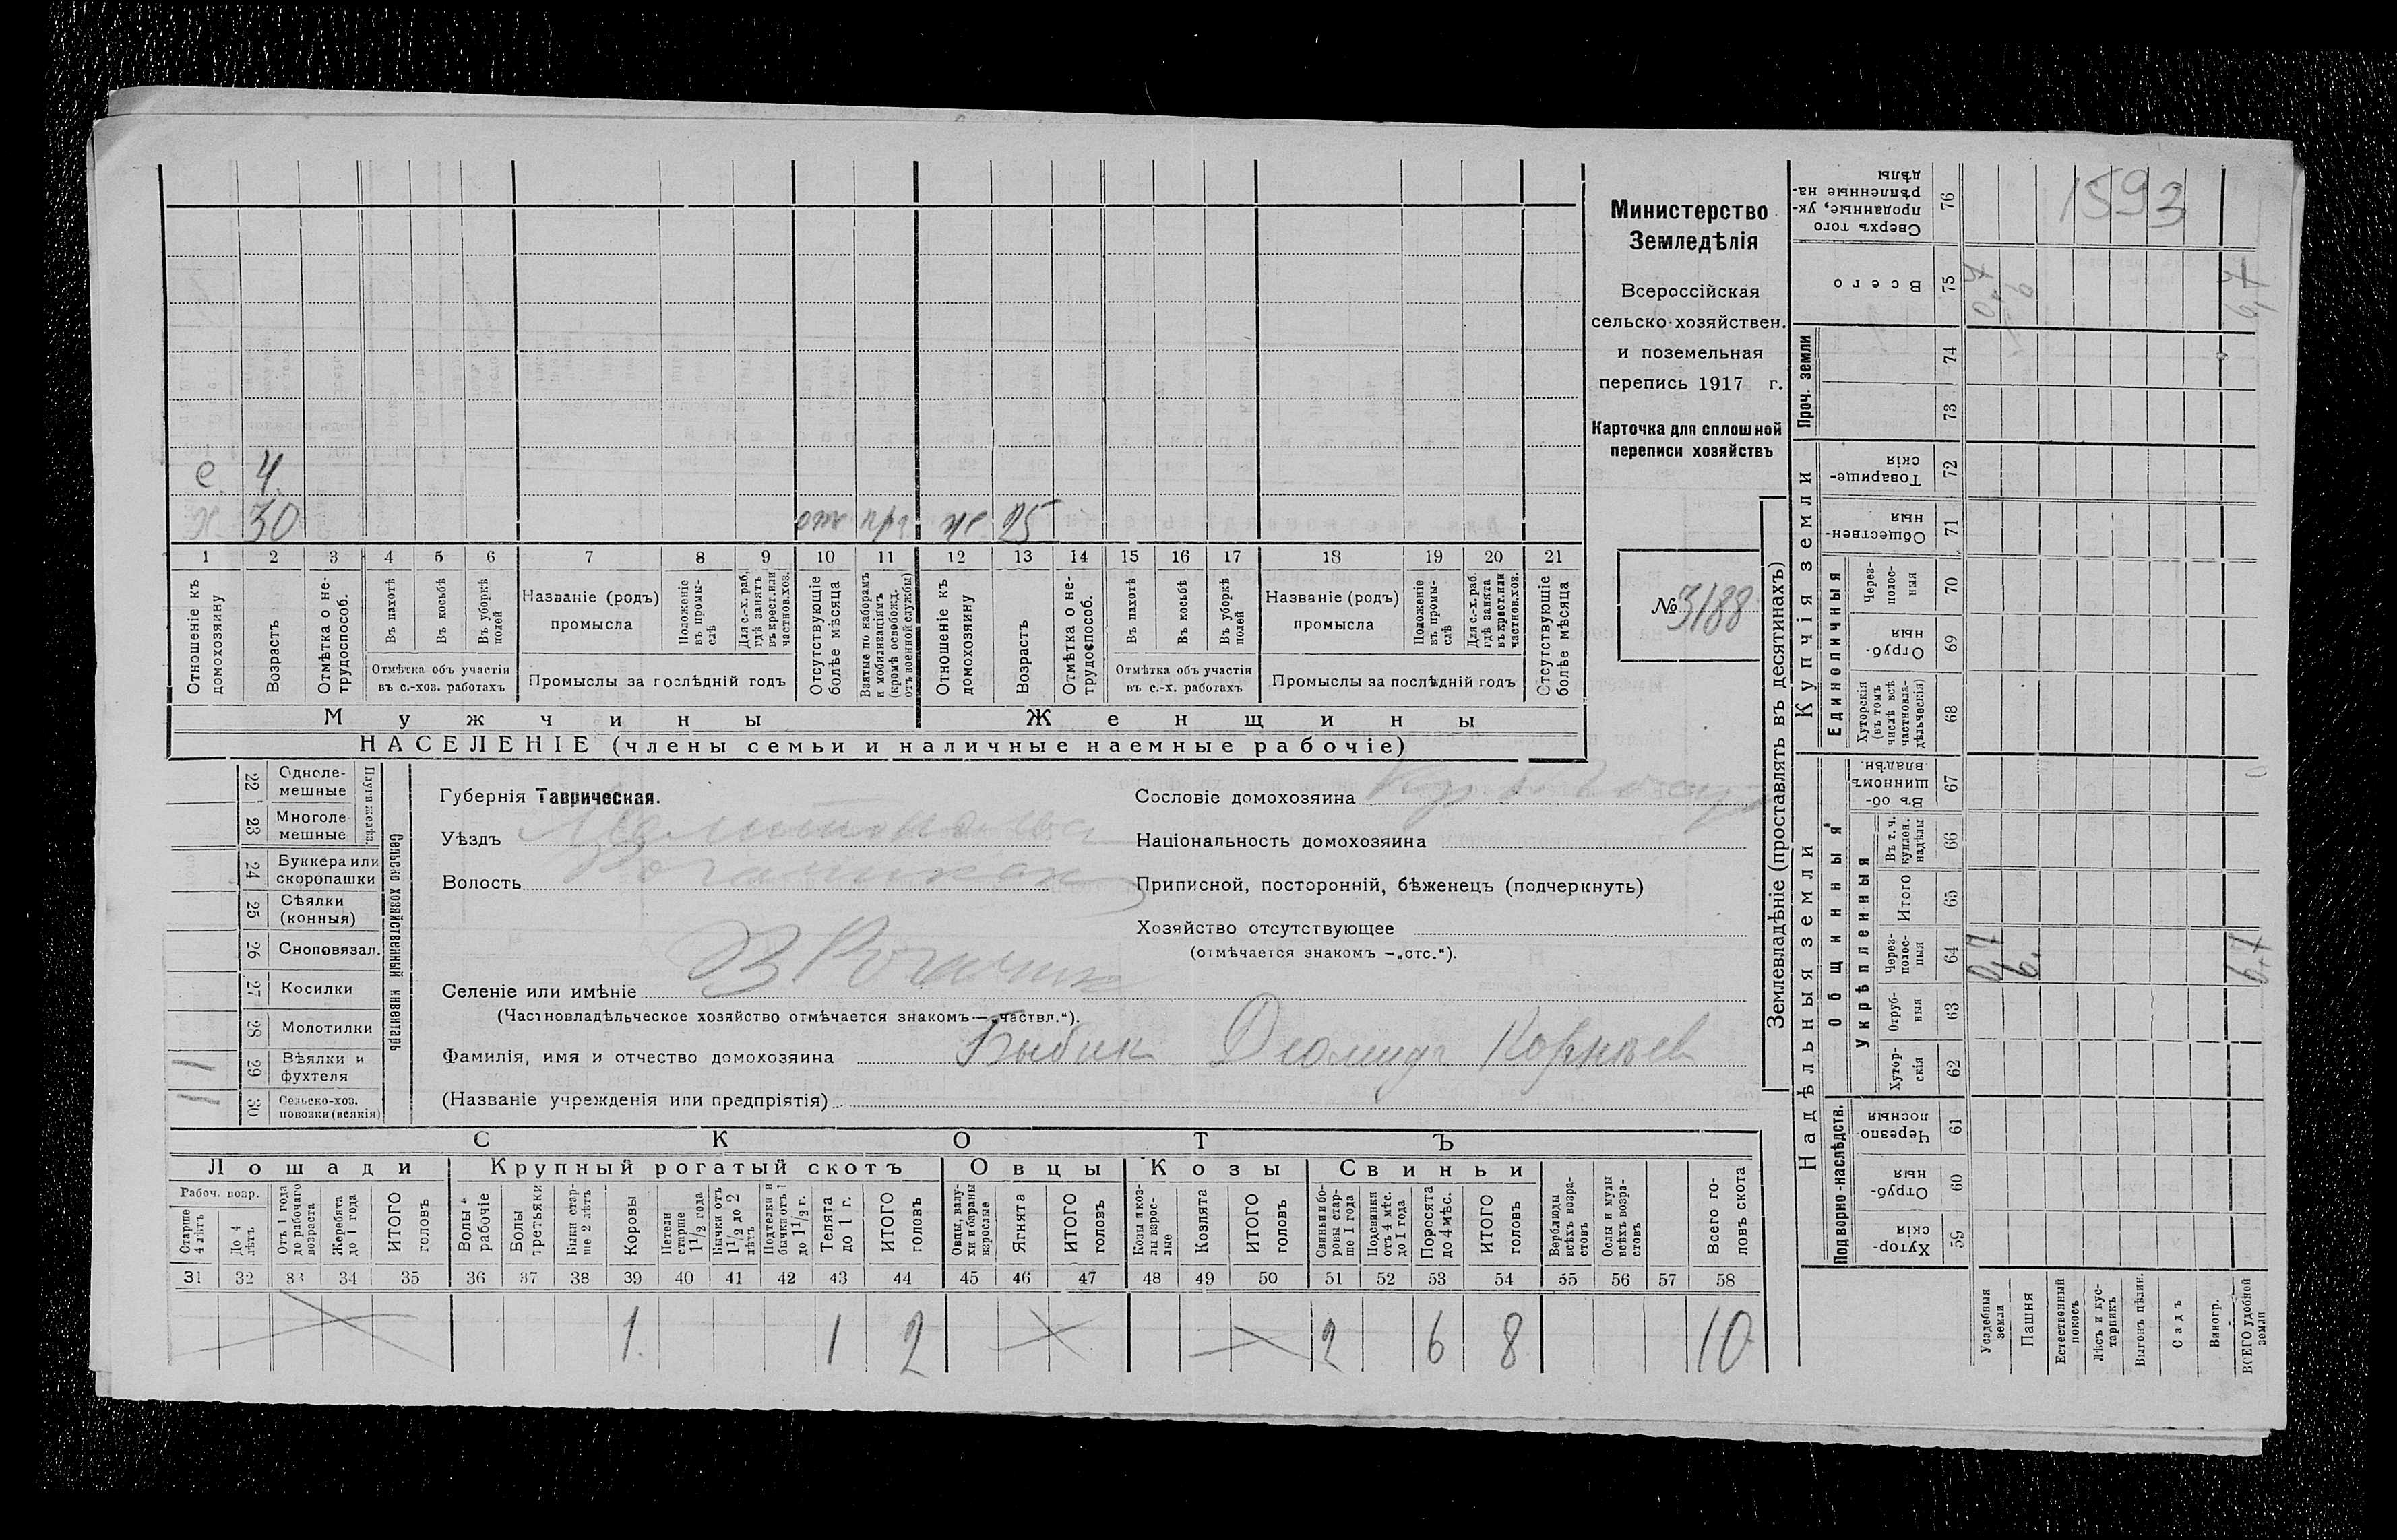 1593
Министерство
Земледѣлія
Всероссійская
сельско-хозяйствен.
и поземельная
перепись 1917 г.
Карточка для сплошной
переписи хозяйствъ
№ 3188
е. 4.
х. 30 отс пр. же. 25
1 2 3 4 5 6 7 8 9 10 11 12 13 14 15 16 17 18 19 20 21
Отношеніе къ домохозяину
Возрастъ
Отмѣтка о не-трудоспособ.
Въ пахотѣ
Въ косьбѣ
Въ уборкѣ полей
Отмѣтка объ участіи
въ с.-хоз. работахъ
Названіе (родъ)
промысла
Положеніе въ промы-слѣ
Для с.-х. раб. гдѣ занятъ въ крест. или частнов. хоз.
Промыслы за послѣдній годъ
Отсутствующіе болѣе мѣсяца
Взятые по наборамъ и мобилизаціямъ (кромѣ освобожд. отъ военной службы)
Отношеніе къ домохозяину
Возрастъ
Отмѣтка о не-трудоспособ.
Въ пахотѣ
Въ косьбѣ
Въ уборкѣ полей
Отмѣтка объ участіи
въ с.-х. работахъ
Названіе (родъ)
промысла
Положеніе въ промы-слѣ
Для с.-х. раб. гдѣ занята въ крест. или частнов. хоз.
Промыслы за послѣдній годъ
Отсутствующіе болѣе мѣсяца
Мужчины Женщины
НАСЕЛЕНІЕ (члены семьи и наличные наемные рабочіе)
22 Одноле-мешные
23 Многоле-мешные
24 Буккера или скоропашки
25 Сѣялки (конныя)
26 Сноповязал.
27 Косилки
28 Молотилки
29 Вѣялки и фухтеля
30 Сельско-хоз. повозки (всякія)
Сельско хозяйственный инвентарь
Губернія Таврическая.
Уѣздъ
Волость
Селеніе или имѣніе В Рогачик
(Частновладѣльческое хозяйство отмѣчается знакомъ—„частвл.“).
Фамилія, имя и отчество домохозяина Быбик Диомид Корнѣев
(Названіе учрежденія или предпріятія)
Сословіе домохозяина
Національность домохозяина
Приписной, посторонній, бѣженецъ (подчеркнуть)
Хозяйство отсутствующее
(отмѣчается знакомъ —„отс.“).
СКОТЪ
Лошади Крупный рогатый скотъ Овцы Козы Свиньи
Рабоч. возр.
Старше 4 лѣтъ
До 4 лѣтъ
Отъ 1 года до рабочаго возраста
Жеребята до 1 года
ИТОГО головъ
Волы рабочіе
Волы третьяки
Быки стар-ше 2 лѣтъ
Коровы
Нетели старше 1½ года
Бычки отъ 1½ до 2 лѣтъ
Подтелки и бычки отъ 1 до 1½ г.
Телята до 1 г.
ИТОГО головъ
Овцы, валу-хи и бараны взрослые
Ягнята
ИТОГО головъ
Козы и коз-лы взрос-лые
Козлята
ИТОГО головъ
Свиньи и бо-ровы стар-ше 1 года
Подсвинки отъ 4 мѣс. до 1 года
Поросята до 4 мѣс.
ИТОГО головъ
Верблюды всѣхъ возра-стовъ
Ослы и мулы всѣхъ возра-стовъ
Всего го-ловъ скота
31 32 33 34 35 36 37 38 39 40 41 42 43 44 45 46 47 48 49 50 51 52 53 54 55 56 57 58
1. 1 2 2 6 8 10
Землевладѣніе (проставлять въ десятинахъ)
Надѣльныя земли Купчія земли Проч. земли
Подворно-наслѣдств.
Общинныя
Укрѣпленныя
Единоличныя
Хутор-скія 59
Отруб-ныя 60
Черезпо-лосныя 61
Хутор-скія 62
Отруб-ныя 63
Через-полос-ныя 64
Итого 65
Въ т. ч. куплен. надѣлы 66
Въ об-щинномъ владѣн. 67
Хуторскія (въ томъ числѣ всѣ частновла-дѣльческія) 68
Отруб-ныя 69
Через-полос-ныя 70
Обществен-ныя 71
Товарище-скія 72
73
74
Всего 75
Сверхъ того проданные, ук-рѣпленные на-дѣлы 76
Усадебныя земли
Пашня
Естественный покосъ
Лѣсъ и кус-тарникъ
Выгонъ цѣлин.
Садъ
Виногр.
ВСЕГО удобной земли